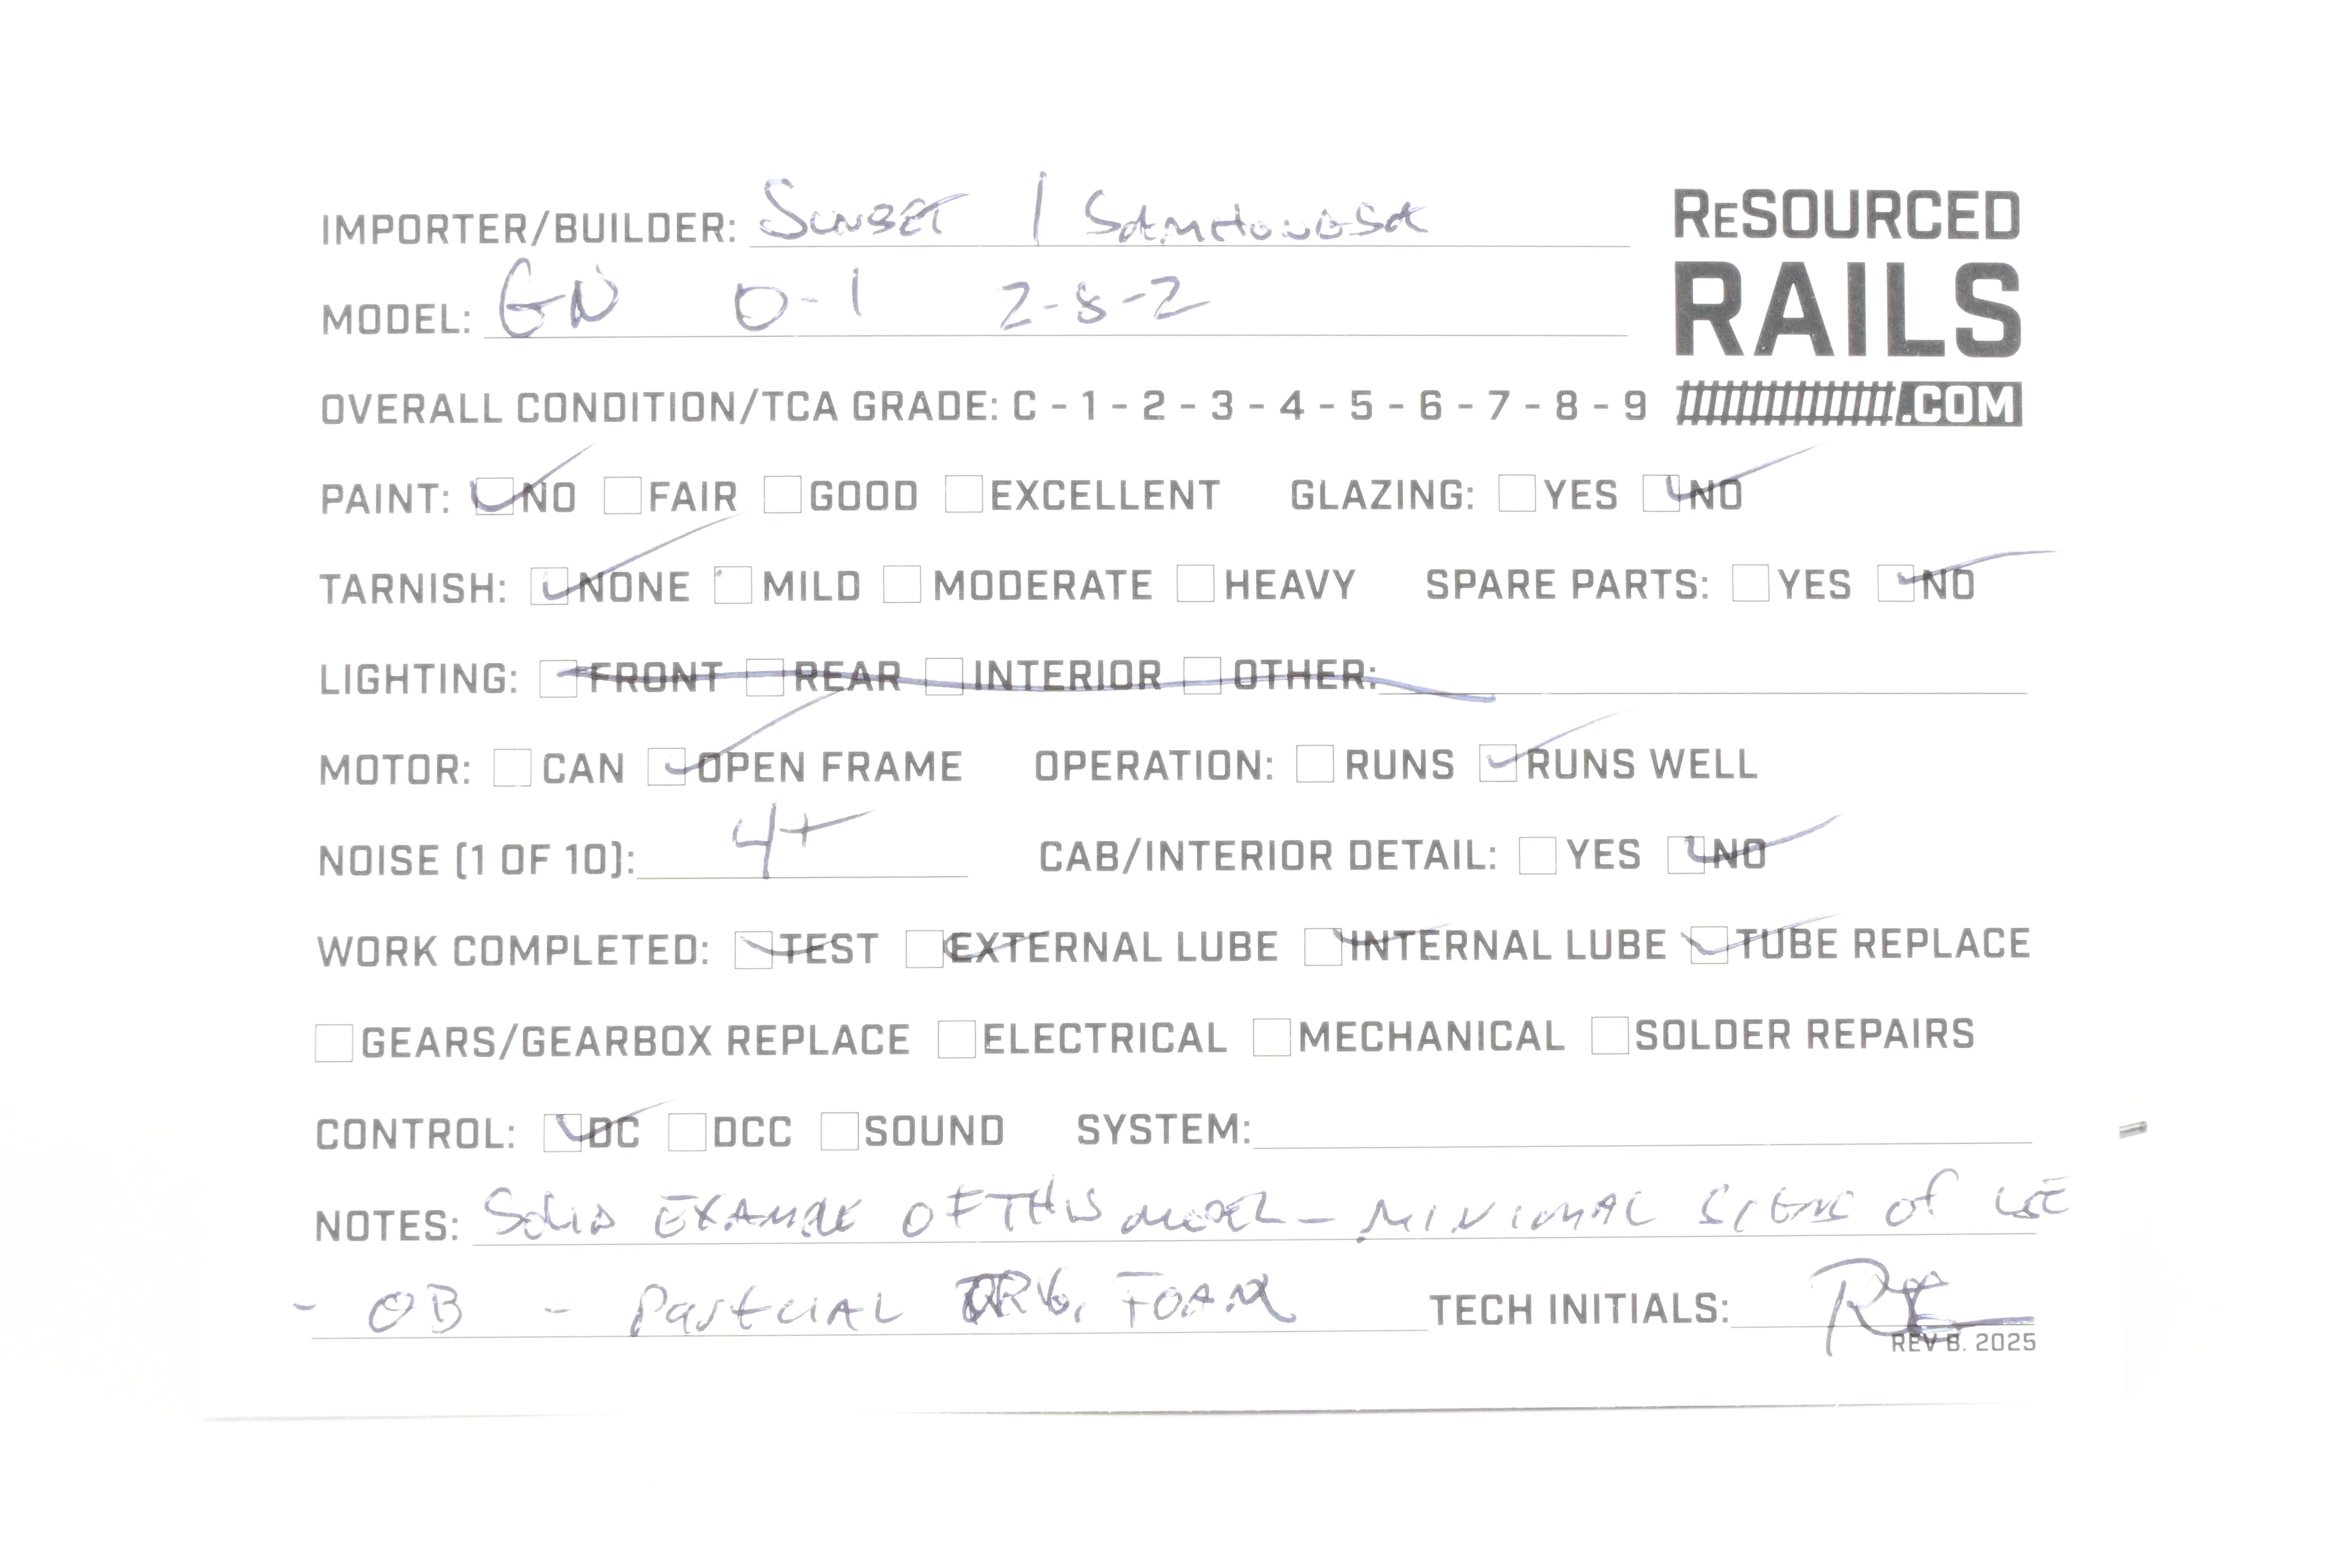 IMPORTER/BUILDER: Sunset / Samhongsa
RESOURCED
RAILS
.COM
MODEL: GN O-1 2-8-2
OVERALL CONDITION/TCA GRADE: C - 1 - 2 - 3 - 4 - 5 - 6 - 7 - 8 - 9
PAINT: NO FAIR GOOD EXCELLENT GLAZING: YES NO
TARNISH: NONE MILD MODERATE HEAVY SPARE PARTS: YES NO
LIGHTING: FRONT REAR INTERIOR OTHER:
MOTOR: CAN OPEN FRAME OPERATION: RUNS RUNS WELL
NOISE (1 OF 10): 4+ CAB/INTERIOR DETAIL: YES NO
WORK COMPLETED: TEST EXTERNAL LUBE INTERNAL LUBE TUBE REPLACE
GEARS/GEARBOX REPLACE ELECTRICAL MECHANICAL SOLDER REPAIRS
CONTROL: DC DCC SOUND SYSTEM:
NOTES: Solid EXAMPLE OF THIS MODEL - MINIMAL SIGNS OF USE
- OB - PARTIAL ORG. FOAM TECH INITIALS:
REV B. 2025